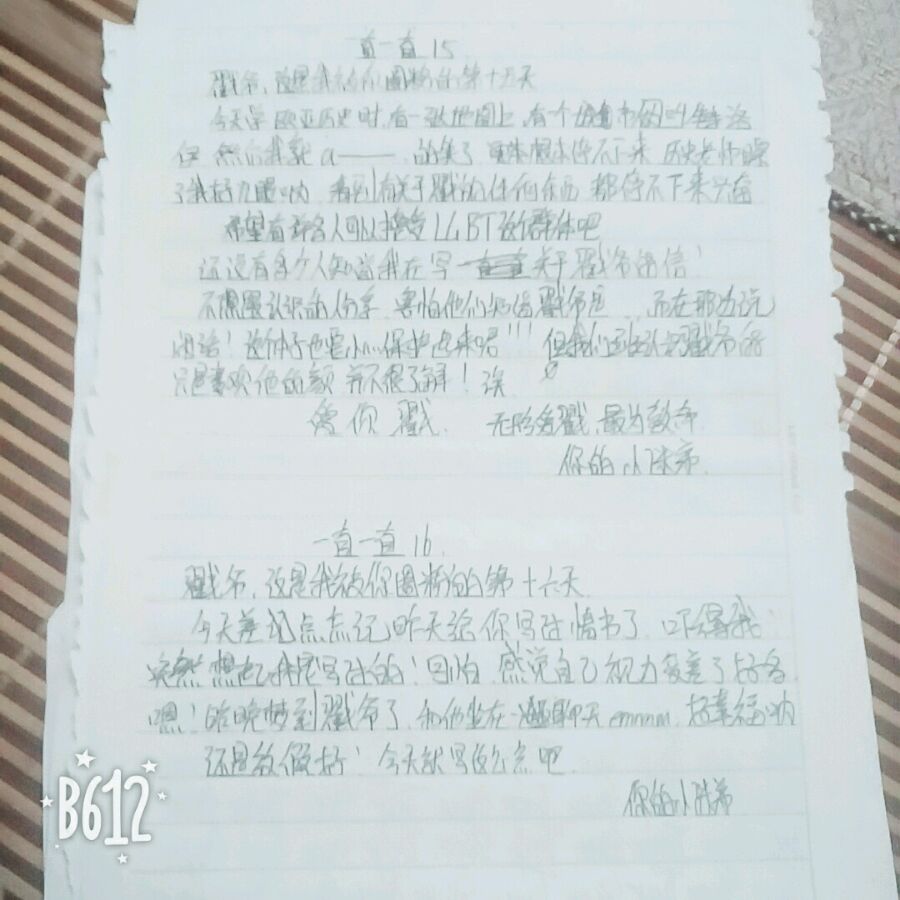 一直一直15
戳爷,这是我被你圈粉的第十五天
今天学欧亚历史时,有一张地图上,有个城市的叫特洛
伊 然后我就a—— 的笑了 根本停不下来 历史老师瞟
了我好几眼呐 看到有关于戳的任何东西 都停不下来兴奋
希望有许多人可以接受LGBT的群体吧
还没有多少人知道我在写一直一直关于戳爷的信!
不想圈认识的人 害怕他们知道戳爷 而在那边说
闲话! 也要小心保护起来嗯!!! 但我们 戳爷的
只是喜欢他的颜 并不很了解! 唉
爱你戳 无脑爱戳 最为致命
你的小
一直一直16
戳爷,这是我被你圈粉的第十六天
今天差点忘记昨天给你写过情书了 吓得我
突然想起我是写过的! 可怕 感觉自己视力变差了好多
嗯! 昨晚梦到戳爷了 和他坐在一 聊天emmm 好幸福呐
还是放假好! 今天就写这么点吧
你的小
B612